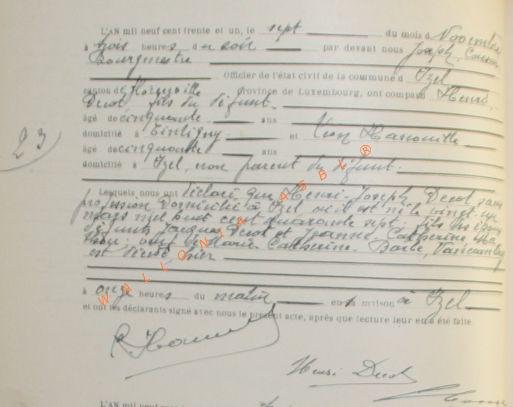 L'AN mil neuf cent trente et un, le sept du mois de Novembre
à trois heures du soir par devant nous Joseph
Bourgmestre Officier de l'état civil de la commune d Izel
canton de Florenville province de Luxembourg, ont comparu Henri
Decot fils du défunt
âgé de cinquante ans
domicilié à Tintigny et Léon Hanouille
âgé de cinquante ans
domicilié à Izel, non parent du défunt.
Lesquels nous ont déclaré que Henri-Joseph Decot sans
profession domicilié à Izel où il est né le vingt un
mars mil huit cent quarante sept fils des époux
défunts Jacques Decot et Jeanne Catherine
veuf de Marie Catherine
est décédé hier
à onze heures du matin en sa maison à Izel
et ont les déclarants signé avec nous le présent acte, après que lecture leur en a été faite.
Henri Decot
L'AN mil neuf cent
23
WALLONIA ASBL ®